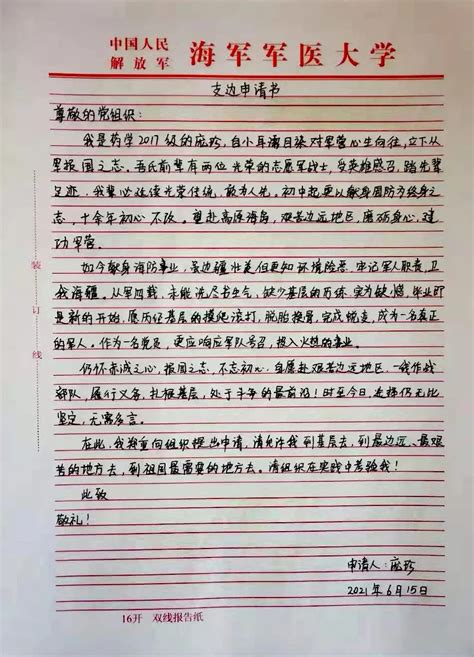 中国人民解放军 海军军医大学
支边申请书
尊敬的党组织：
我是药学2017级的庞珍，自小耳濡目染对军营心生向往，立下从
军报国之志。吾氏前辈有两位光荣的志愿军战士，受英雄感召，踏先辈
足迹，我辈必延续光荣传统，敢为人先。初中起更以献身国防为终身之
志，十余年初心不改。望赴高原海岛，艰苦边远地区，磨砺身心，建
功军营。
如今献身海防事业，虽边疆壮美但更知环境险恶，牢记军人职责，卫
我海疆。从军四载，未能洗尽书生气，缺少基层的历练，实为缺憾，毕业即
是新的开始，愿历经基层的摸爬滚打，脱胎换骨，完成蜕变，成为一名真正
的军人。作为一名党员，更应响应军队号召，投入火热的事业。
仍怀赤诚之心，报国之志，不忘初心，自愿赴艰苦边远地区，一线作战
部队，履行义务，扎根基层，处于斗争的最前沿！时至今日，选择仍无比
坚定，无需多言。
在此，我郑重向组织提出申请，请允许我到基层去，到最边远、最艰
苦的地方去，到祖国最需要的地方去。请组织在实践中考验我！
此致
敬礼！
申请人：庞珍
2021年6月15日
装
订
线
16开 双线报告纸